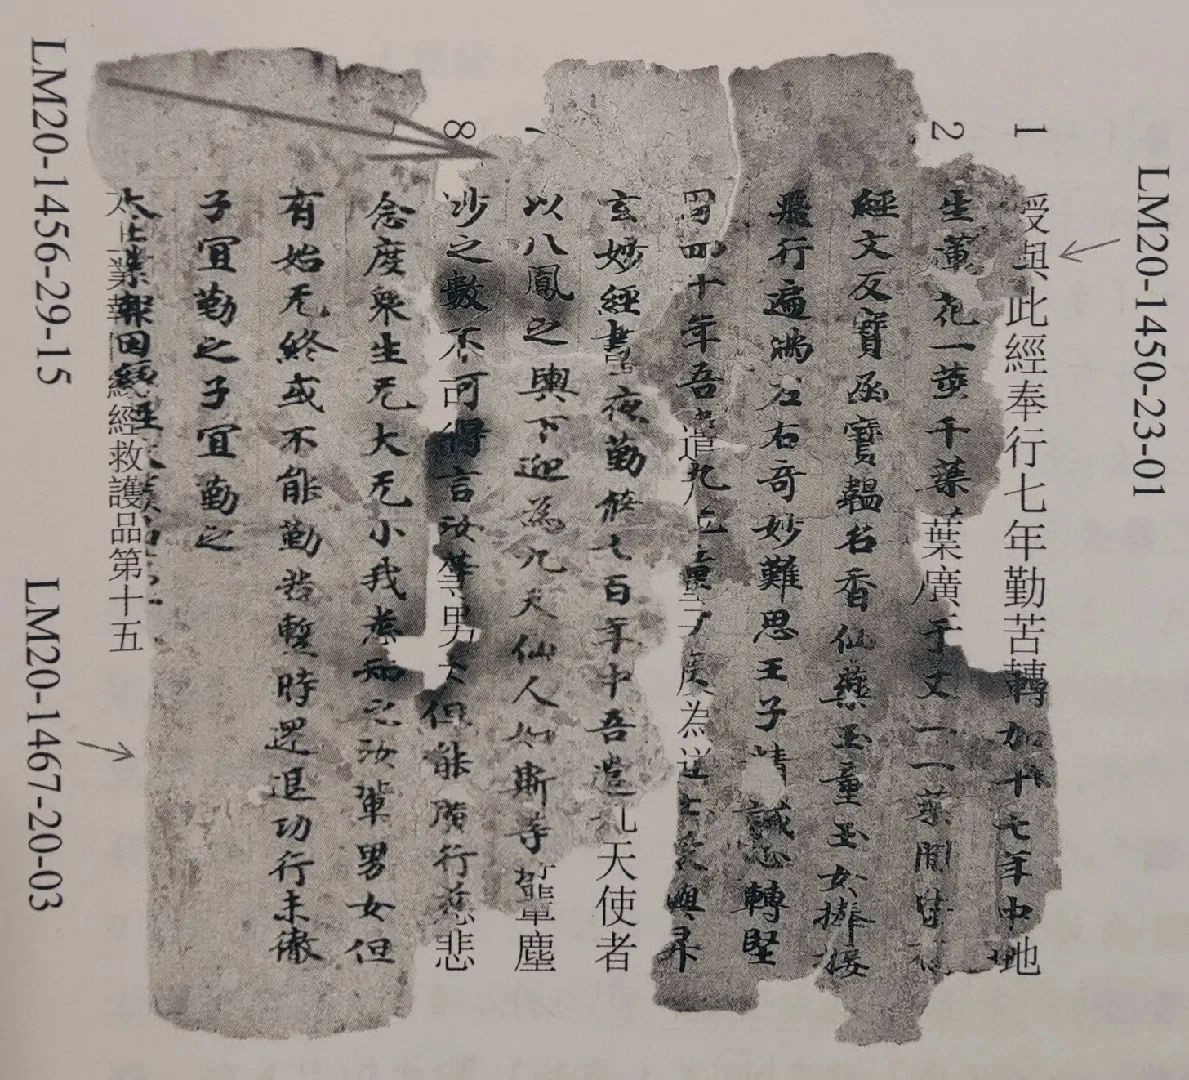 LM20-1450-23-01
1 授與此經奉行七年勤苦轉加十七年中地
2 生蓮花一莖千葉葉廣千丈一一葉間皆有
經文反寶函寶韞名香仙藥玉童玉女捧接
飛行遍滿左右奇妙難思王子精誠心轉堅
固四十年吾遣九
玄妙經晝夜勤能七百年中吾遣九天使者
以八鳳之輿下迎為九天仙人如斯等輩塵
8 沙之數不可得言汝等男女但能廣行慈悲
念度眾生无大无小我悉知之汝輩男女但
有始无終或不能勤苦暫時還退功行未徹
子宜勤之子宜勤之
業報因緣經救護品第十五
LM20-1456-29-15
LM20-1467-20-03